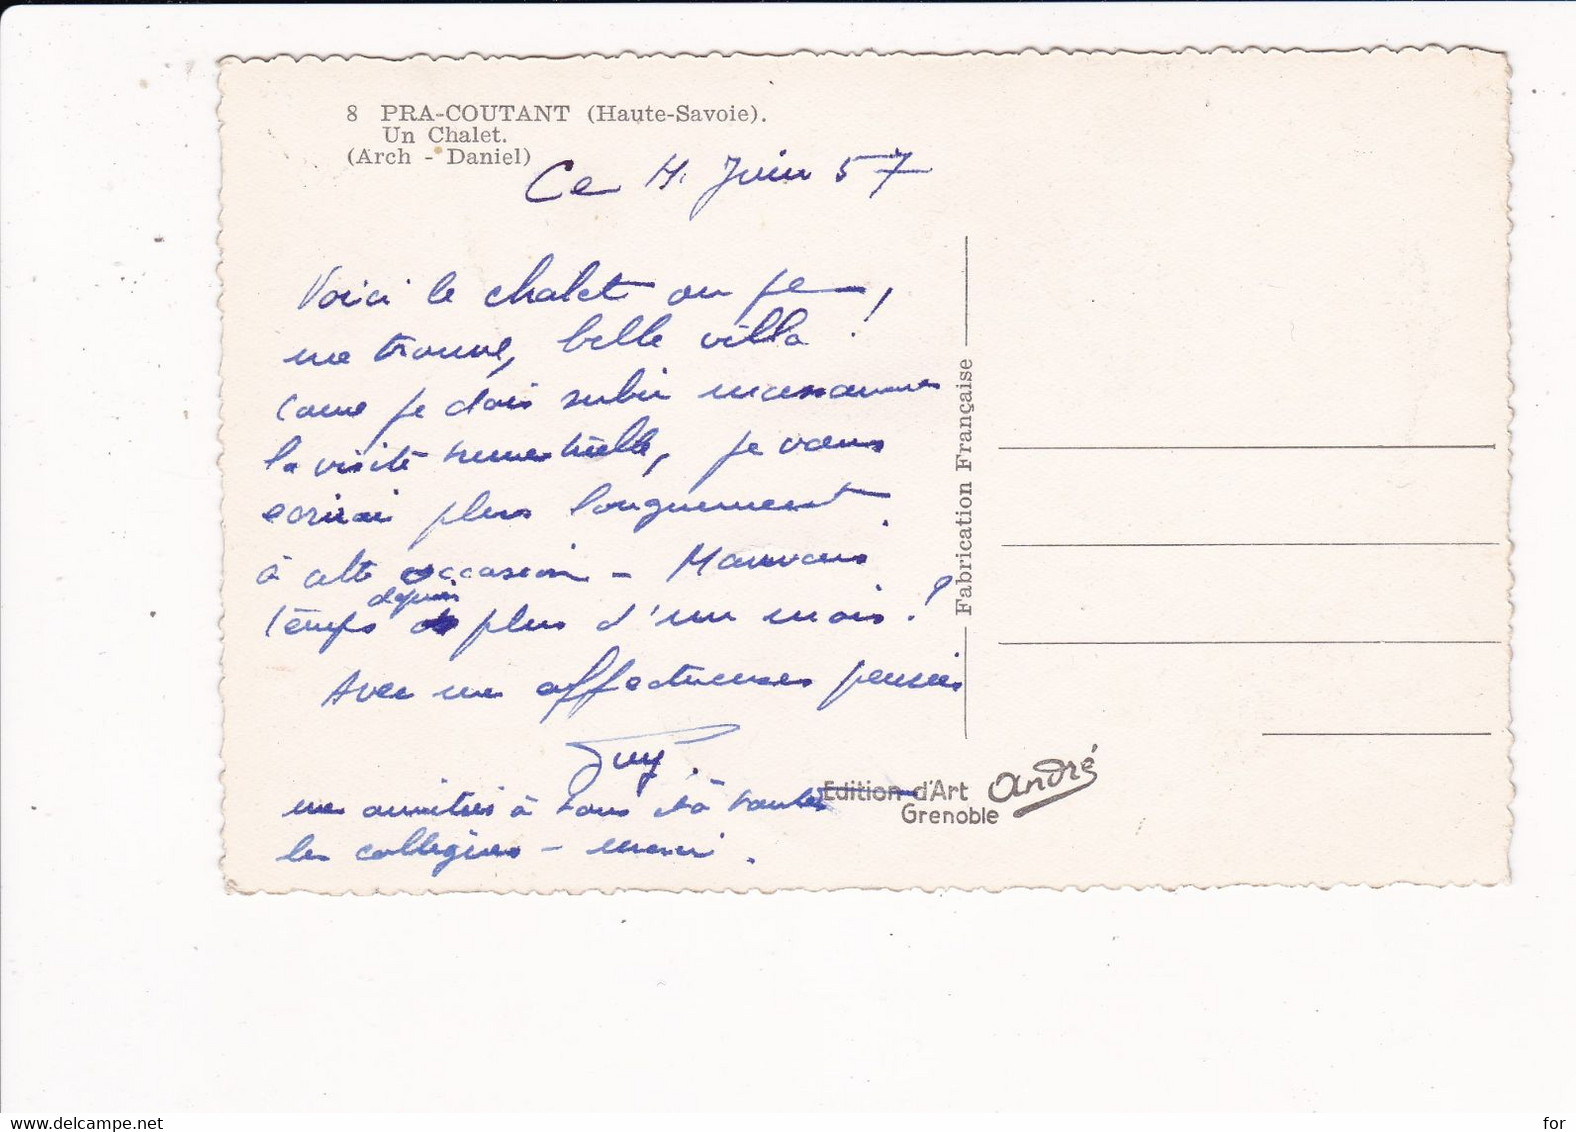 8 PRA-COUTANT (Haute-Savoie).
Un Chalet.
(Arch - Daniel)
Ce Juin 57
Voici le chalet ou je
me trouve, belle villa !
Come je dois subir
la visite, je vous
ecrirai plus longuement
à cette occasion - Mauvais
temps depuis plus d'un mois !
Avec mes affectueuses pensées
Guy.
mes amitiés à tous et à toutes
les collègues - merci.
Fabrication Française
Edition d'Art André
Grenoble
www.delcampe.net
for